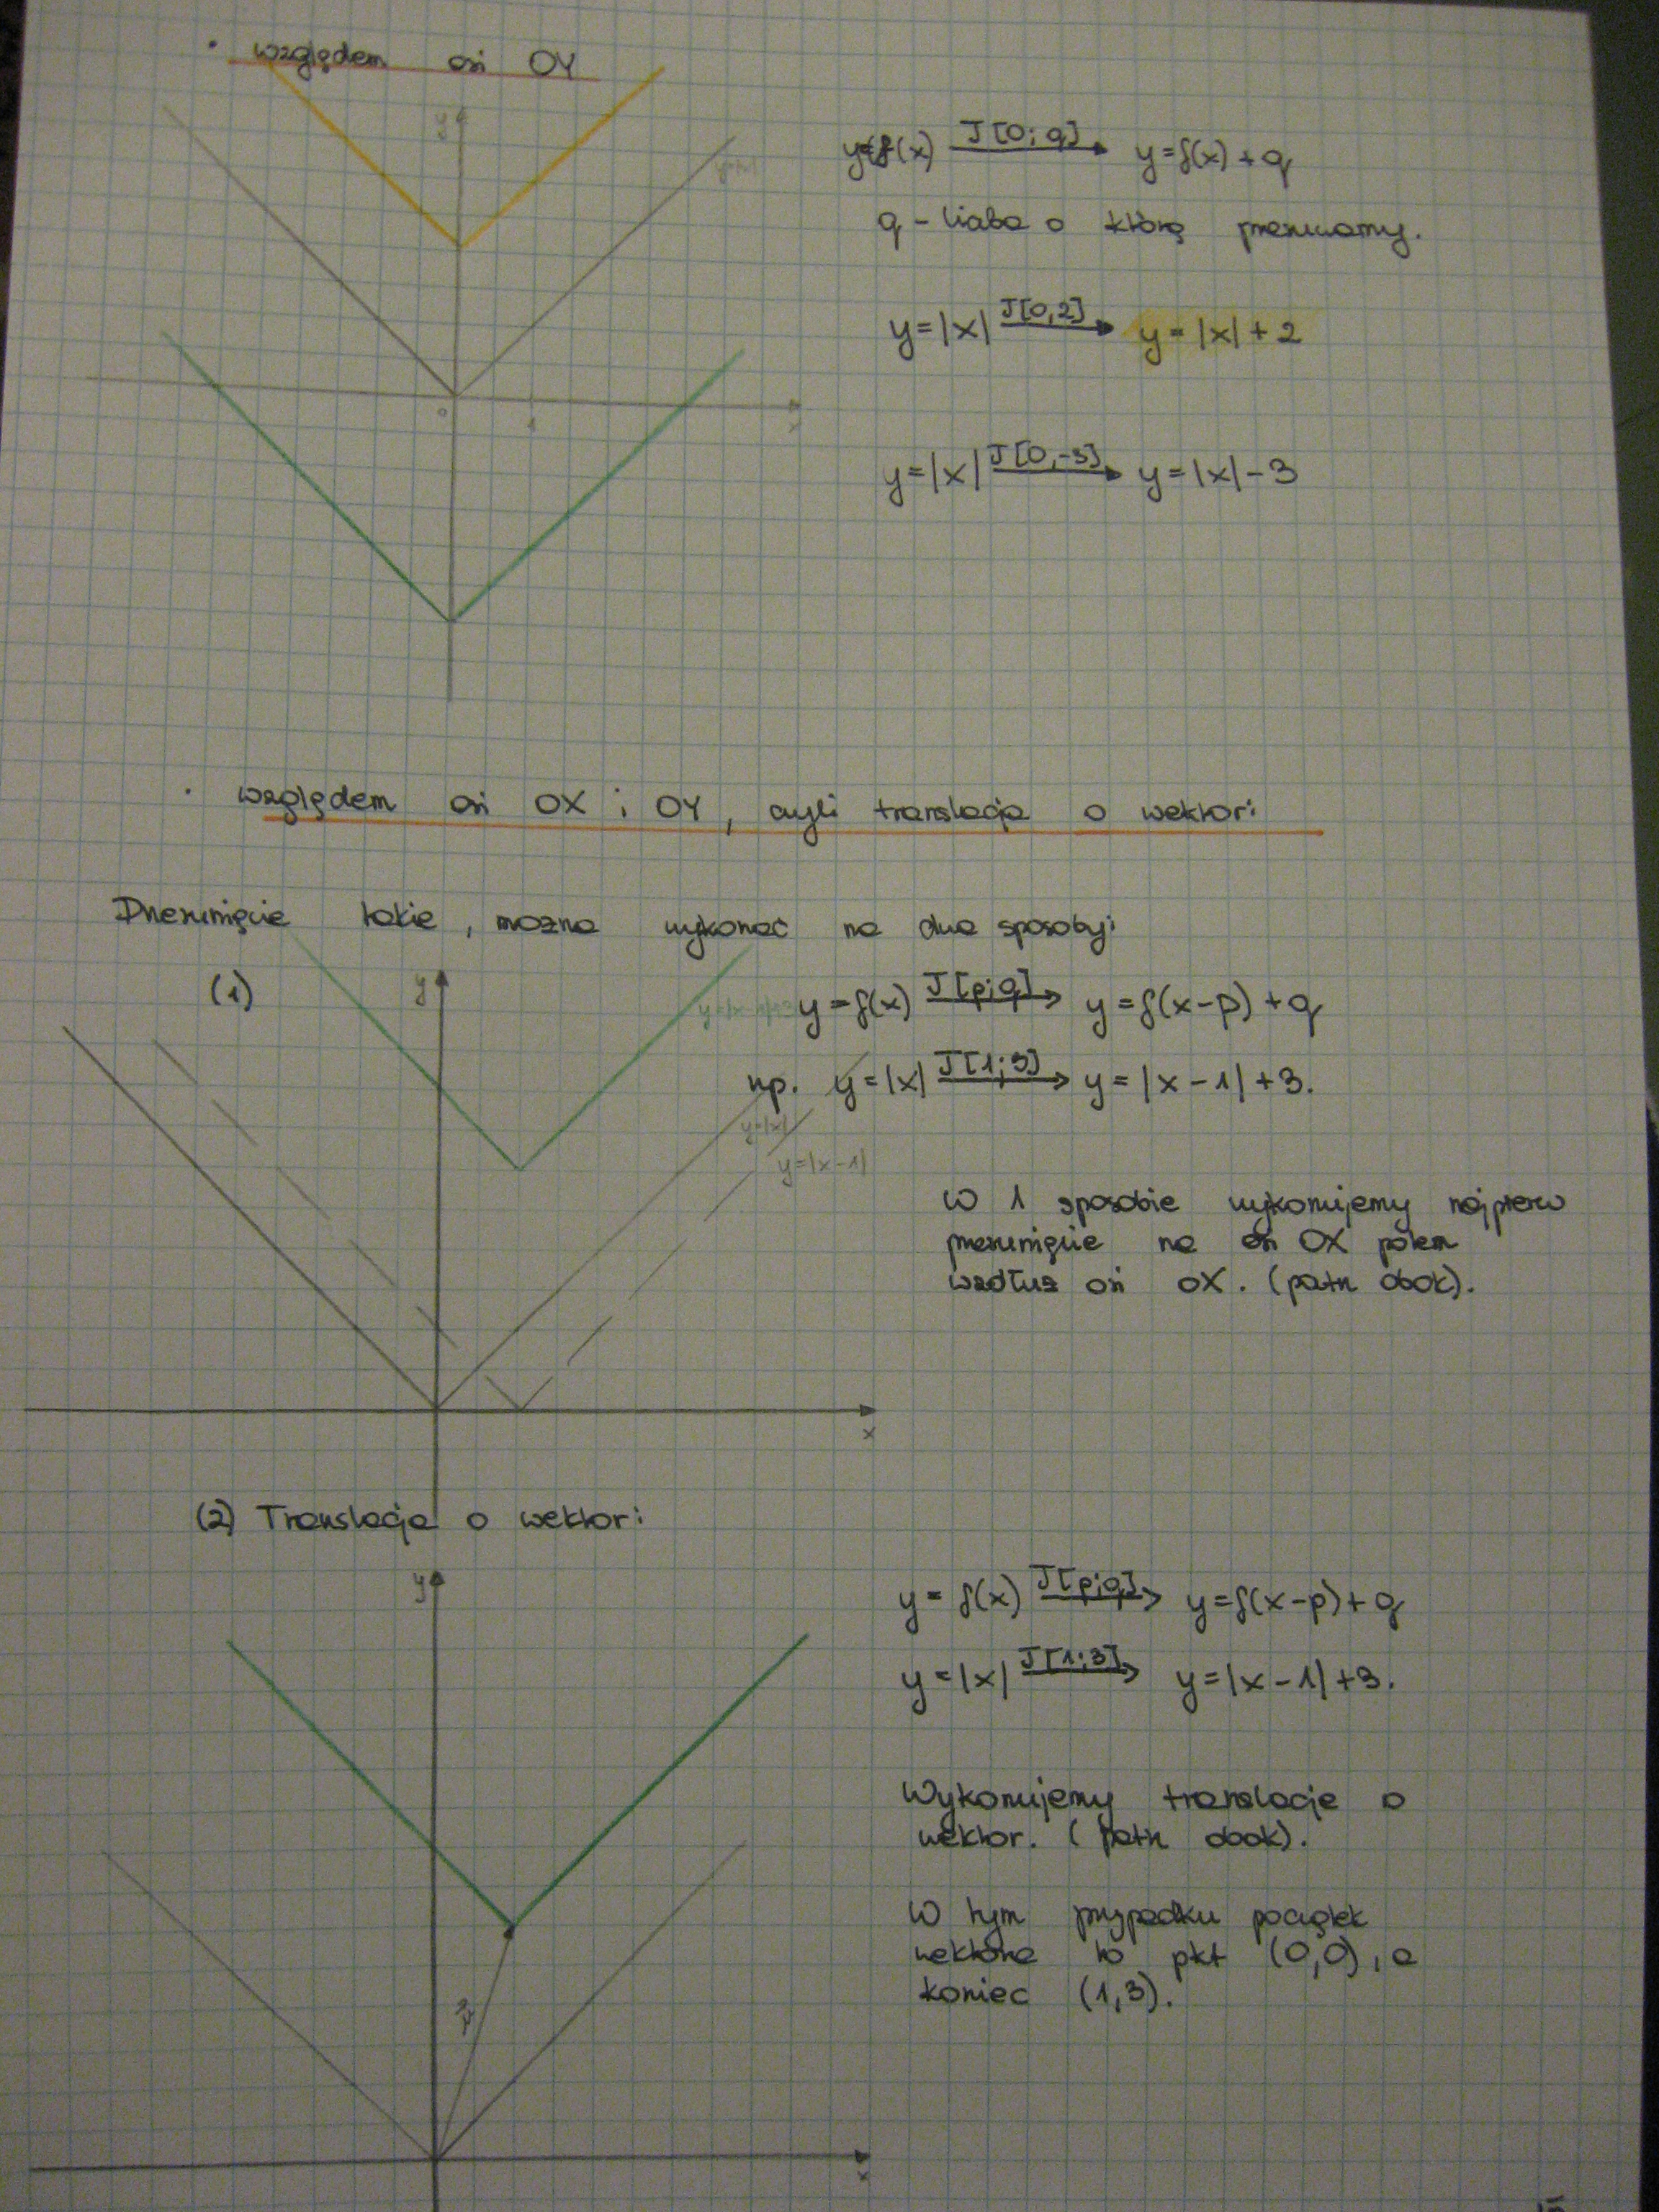 • względem osi OY
y
y=|x|
0
1
x
y=f(x) J[0; q] → y=f(x) + q
q - liczba o którą przesuwamy.
y=|x| J[0,2] → y=|x|+2
y=|x| J[0,-3] → y=|x|-3
• względem osi OX i OY, czyli translacja o wektor:
Przesunięcie takie, można wykonać na dwa sposoby:
(1)
y
y=|x-1|+3
y=f(x) J[p;q] → y=f(x-p)+q
np. y=|x| J[1;3] → y=|x-1|+3.
y=|x|
y=|x-1|
W 1 sposobie wykonujemy najpierw
przesunięcie na osi OX potem
wzdłuż osi OX. (patrz obok).
x
(2) Translacja o wektor:
y
y=f(x) J[p;q] → y=f(x-p)+q
y=|x| J[1;3] → y=|x-1|+3.
Wykonujemy translacje o
wektor. (patrz obok).
W tym przypadku początek
wektora to pkt (0,0), a
koniec (1,3).
x